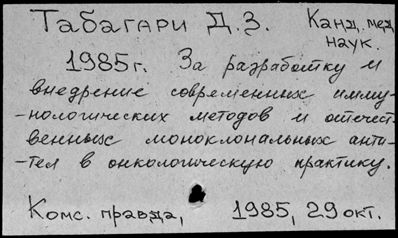 Табагари Д.З. Канд. мед
наук.
1985г. За разработку и
внедрение современных имму-
-нологических методов и отечест-
венных моноклональных анти-
-тел в онкологическую практику.
Комс. правда, 1985, 29 окт.